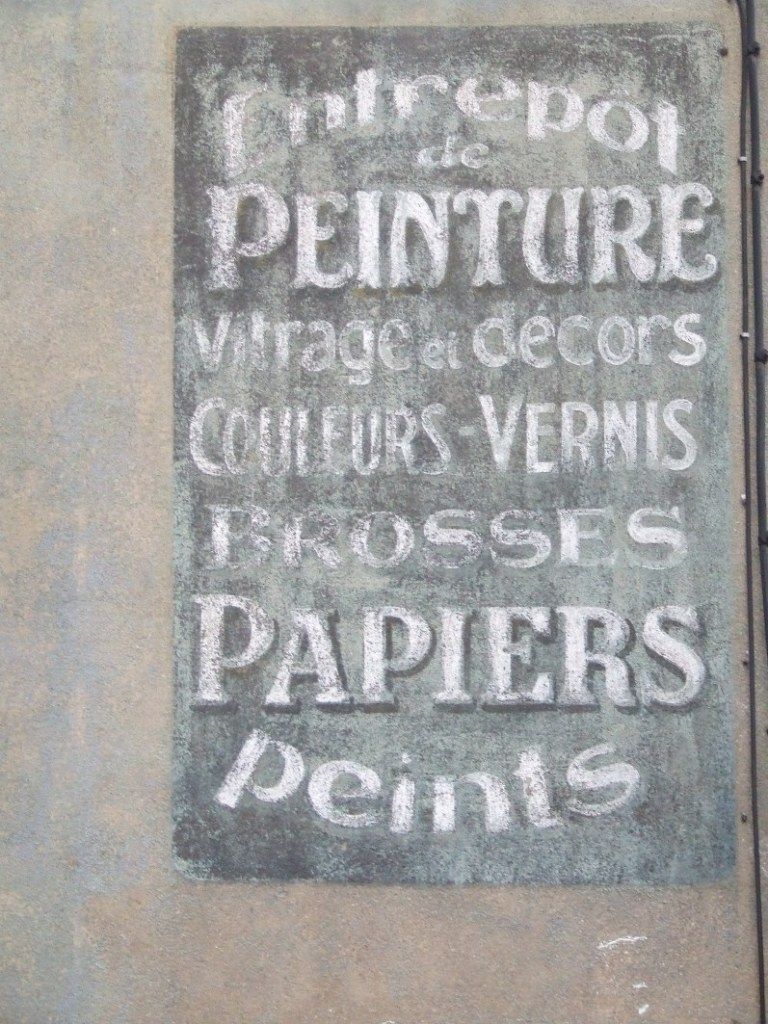 Entrepôt
de
PEINTURE
Vitrage et décors
COULEURS-VERNIS
BROSSES
PAPIERS
peints